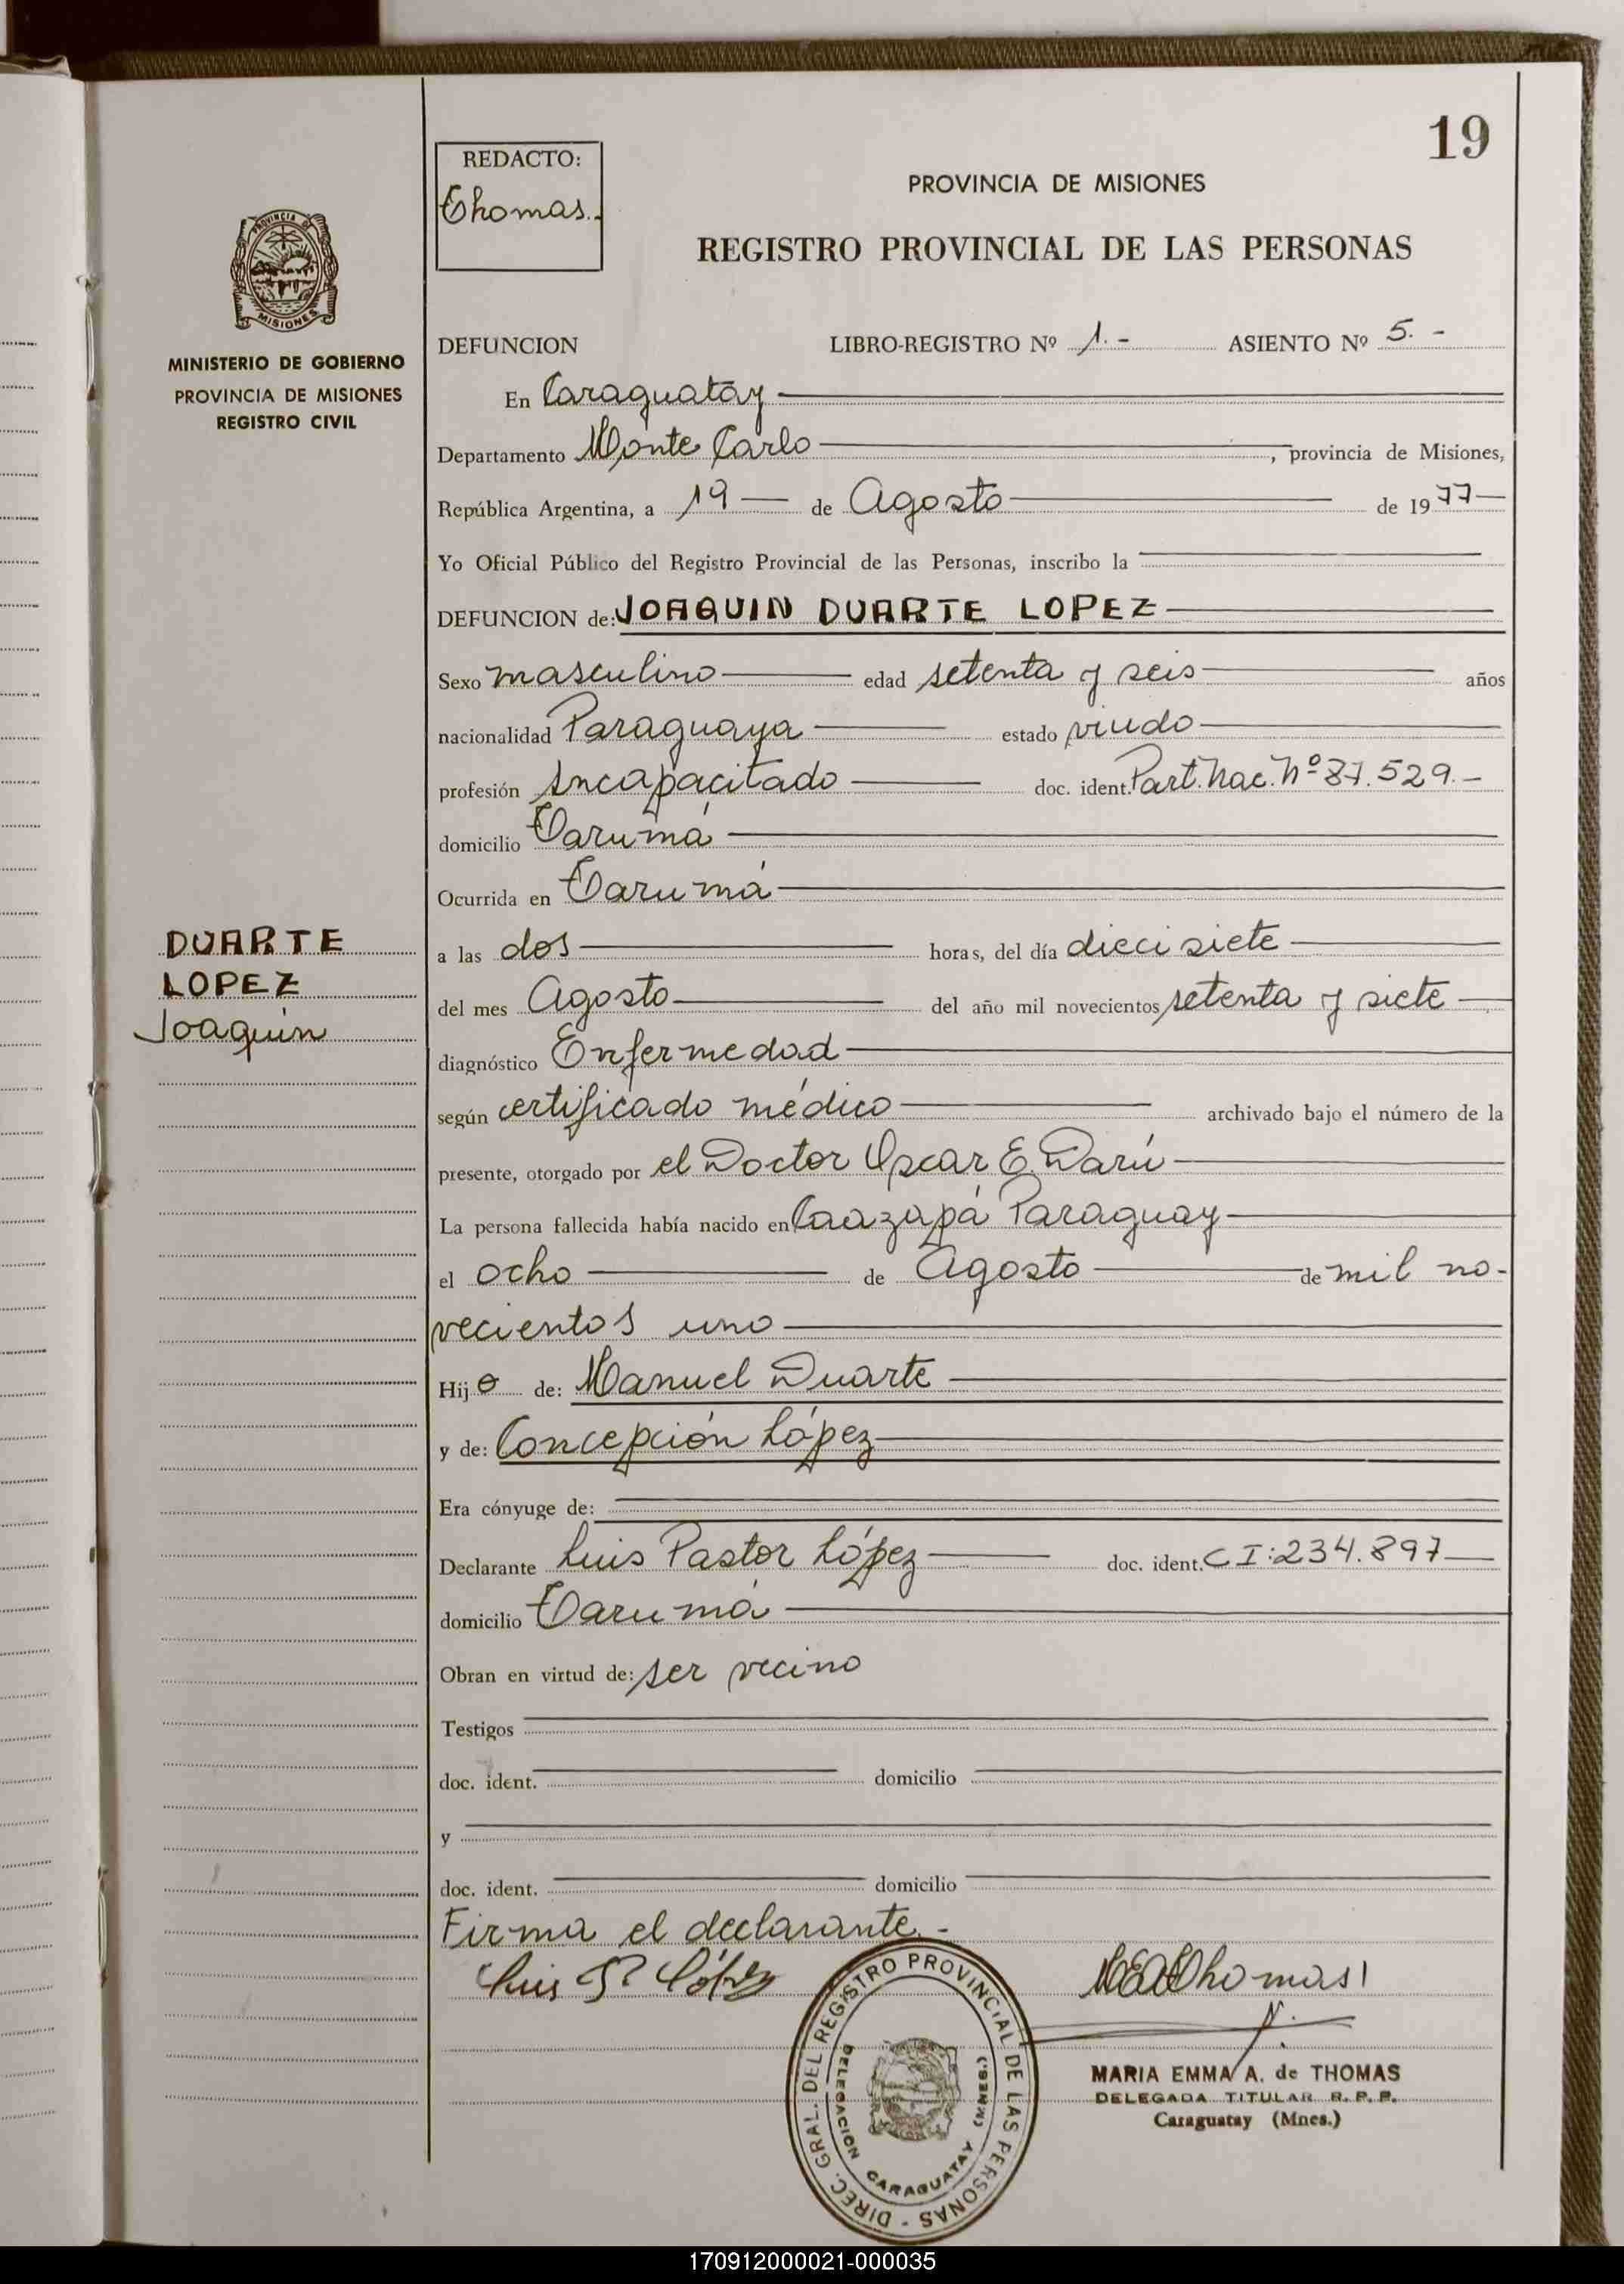 19
REDACTO:
Thomas.
PROVINCIA DE MISIONES
REGISTRO PROVINCIAL DE LAS PERSONAS
PROVINCIA DE
MISIONES
MINISTERIO DE GOBIERNO
PROVINCIA DE MISIONES
REGISTRO CIVIL
DEFUNCION LIBRO-REGISTRO Nº 1.- ASIENTO Nº 5.-
En Caraguatay
Departamento Monte Carlo, provincia de Misiones,
República Argentina, a 19 de Agosto de 1977
Yo Oficial Público del Registro Provincial de las Personas, inscribo la
DEFUNCION de: JOAQUIN DUARTE LOPEZ
Sexo masculino edad setenta y seis años
nacionalidad Paraguaya estado viudo
profesión Incapacitado doc. ident. Part. Nac. Nº 87.529.-
domicilio Tarumá
Ocurrida en Tarumá
DUARTE
LOPEZ
Joaquin
a las dos horas, del día dieci siete
del mes Agosto del año mil novecientos setenta y siete
diagnóstico Enfermedad
según certificado médico archivado bajo el número de la
presente, otorgado por el Doctor Oscar E. Darú
La persona fallecida había nacido en Caazapá Paraguay
el ocho de Agosto de mil no-
vecientos uno
Hijo de: Manuel Duarte
y de: Concepción López
Era cónyuge de:
Declarante Luis Pastor López doc. ident. C I: 234.897
domicilio Tarumá
Obran en virtud de: ser vecino
Testigos
doc. ident. domicilio
y
doc. ident. domicilio
Firma el declarante.-
Luis P. López
MEAThomas
DIREC. GRAL. DEL REGISTRO PROVINCIAL DE LAS PERSONAS -
DELEGACION CARAGUATAY (MNES.)
MARIA EMMA A. de THOMAS
DELEGADA TITULAR R. P. P.
Caraguatay (Mnes.)
170912000021-000035